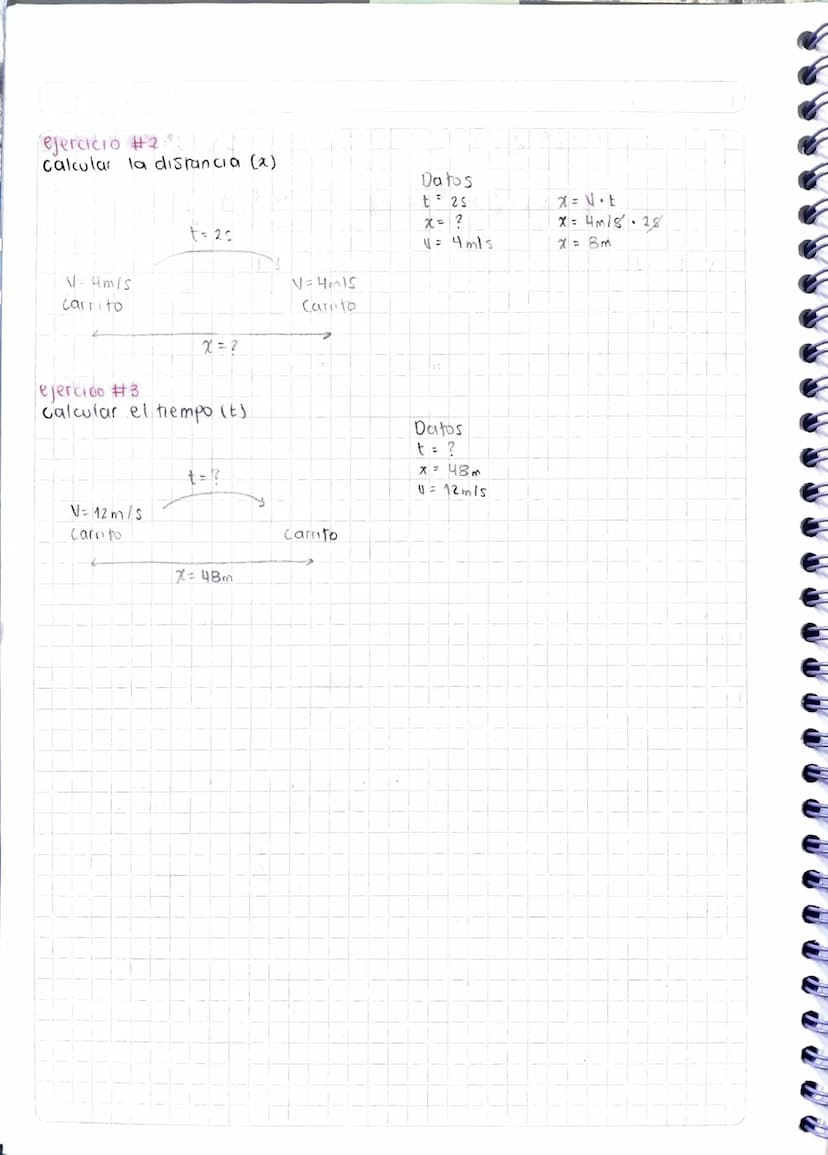 ejercicio #2
calcular la distancia (x)
t = 2s
V = 4m/s
carrito
V = 4m/s
Carrito
x = ?
Datos
t = 2s
x = ?
v = 4m/s
x = V · t
x = 4m/s · 2s
x = 8m
ejercicio #3
calcular el tiempo (t)
t = ?
V = 12m/s
Carrito
Carrito
x = 48m
Datos
t = ?
x = 48m
v = 12m/s